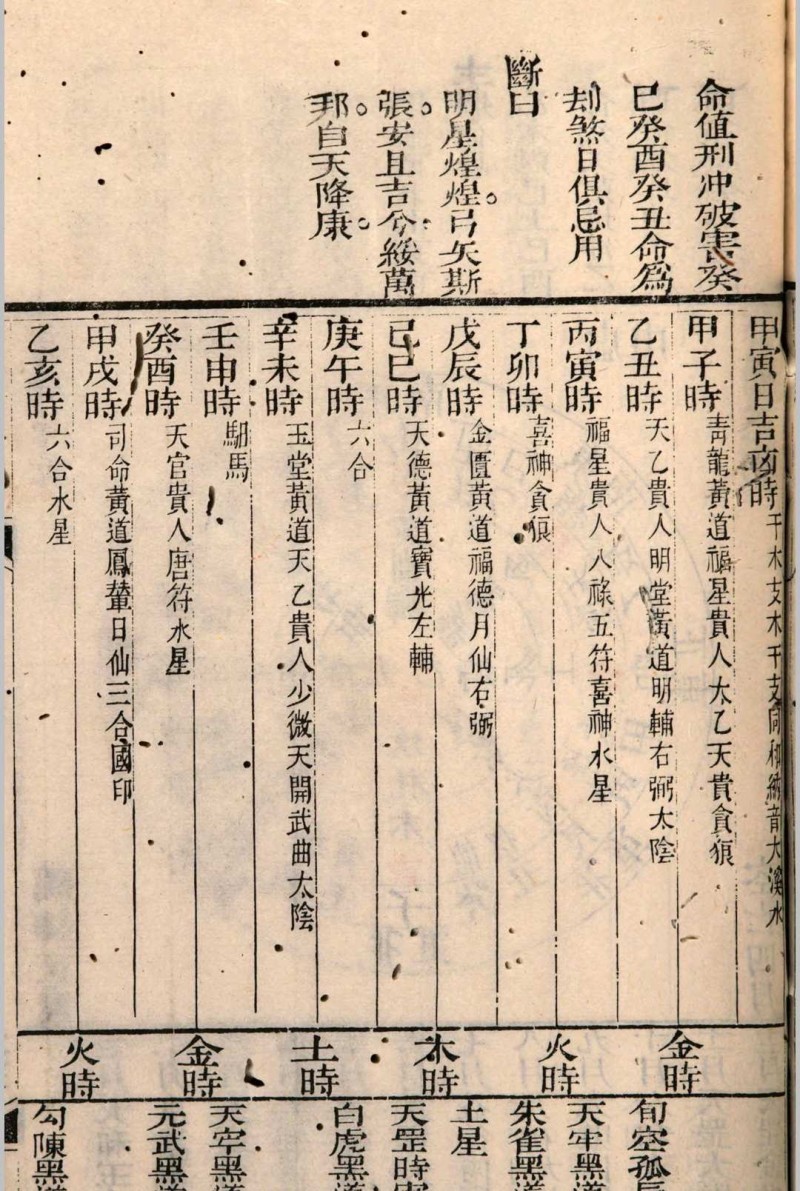 命值刑冲破害癸
巳癸酉癸丑命為
刦煞日俱忌用
斷曰
明星煌煌。弓矢斯
張。安且吉兮。綏萬
邦。自天降康。
甲寅日吉凶時 干木支木干支同和納音大溪水
甲子時 青龍黃道福星貴人太乙天貴貪狼
乙丑時 天乙貴人明堂黃道明輔右弼太陰
丙寅時 福星貴人八祿五符喜神水星
丁卯時 喜神貪狼
戊辰時 金匱黃道福德月仙右弼
己巳時 天德黃道寶光左輔
庚午時 六合
辛未時 玉堂黃道天乙貴人少微天開武曲太陰
壬申時 馹馬
癸酉時 天官貴人唐符水星
甲戌時 司命黃道鳳輦日仙三合國印
乙亥時 六合水星
金時
火時
木時
土時
金時
火時
旬空孤辰
天牢黑道
朱雀黑道
土星
天罡時
白虎黑道
天牢黑道
元武黑道
勾陳黑道